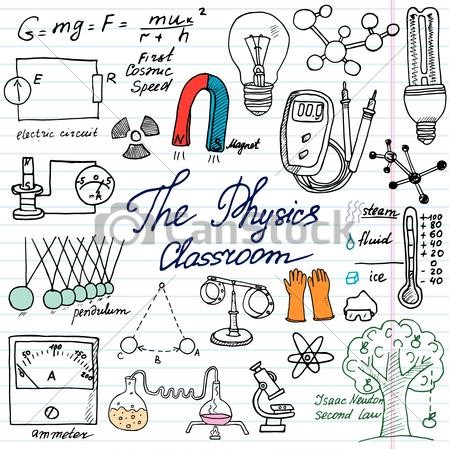 G = mg = F = muₖ² / r + h
First
Cosmic
Speed
E
R
electric circuit
N S
Magnet
The Physics
Classroom
steam
fluid
ice
+100
+80
+60
+40
+20
0
-20
-40
pendulum
A
B
C
0 50 100 150 200
A
ammeter
Isaac Newton
second law